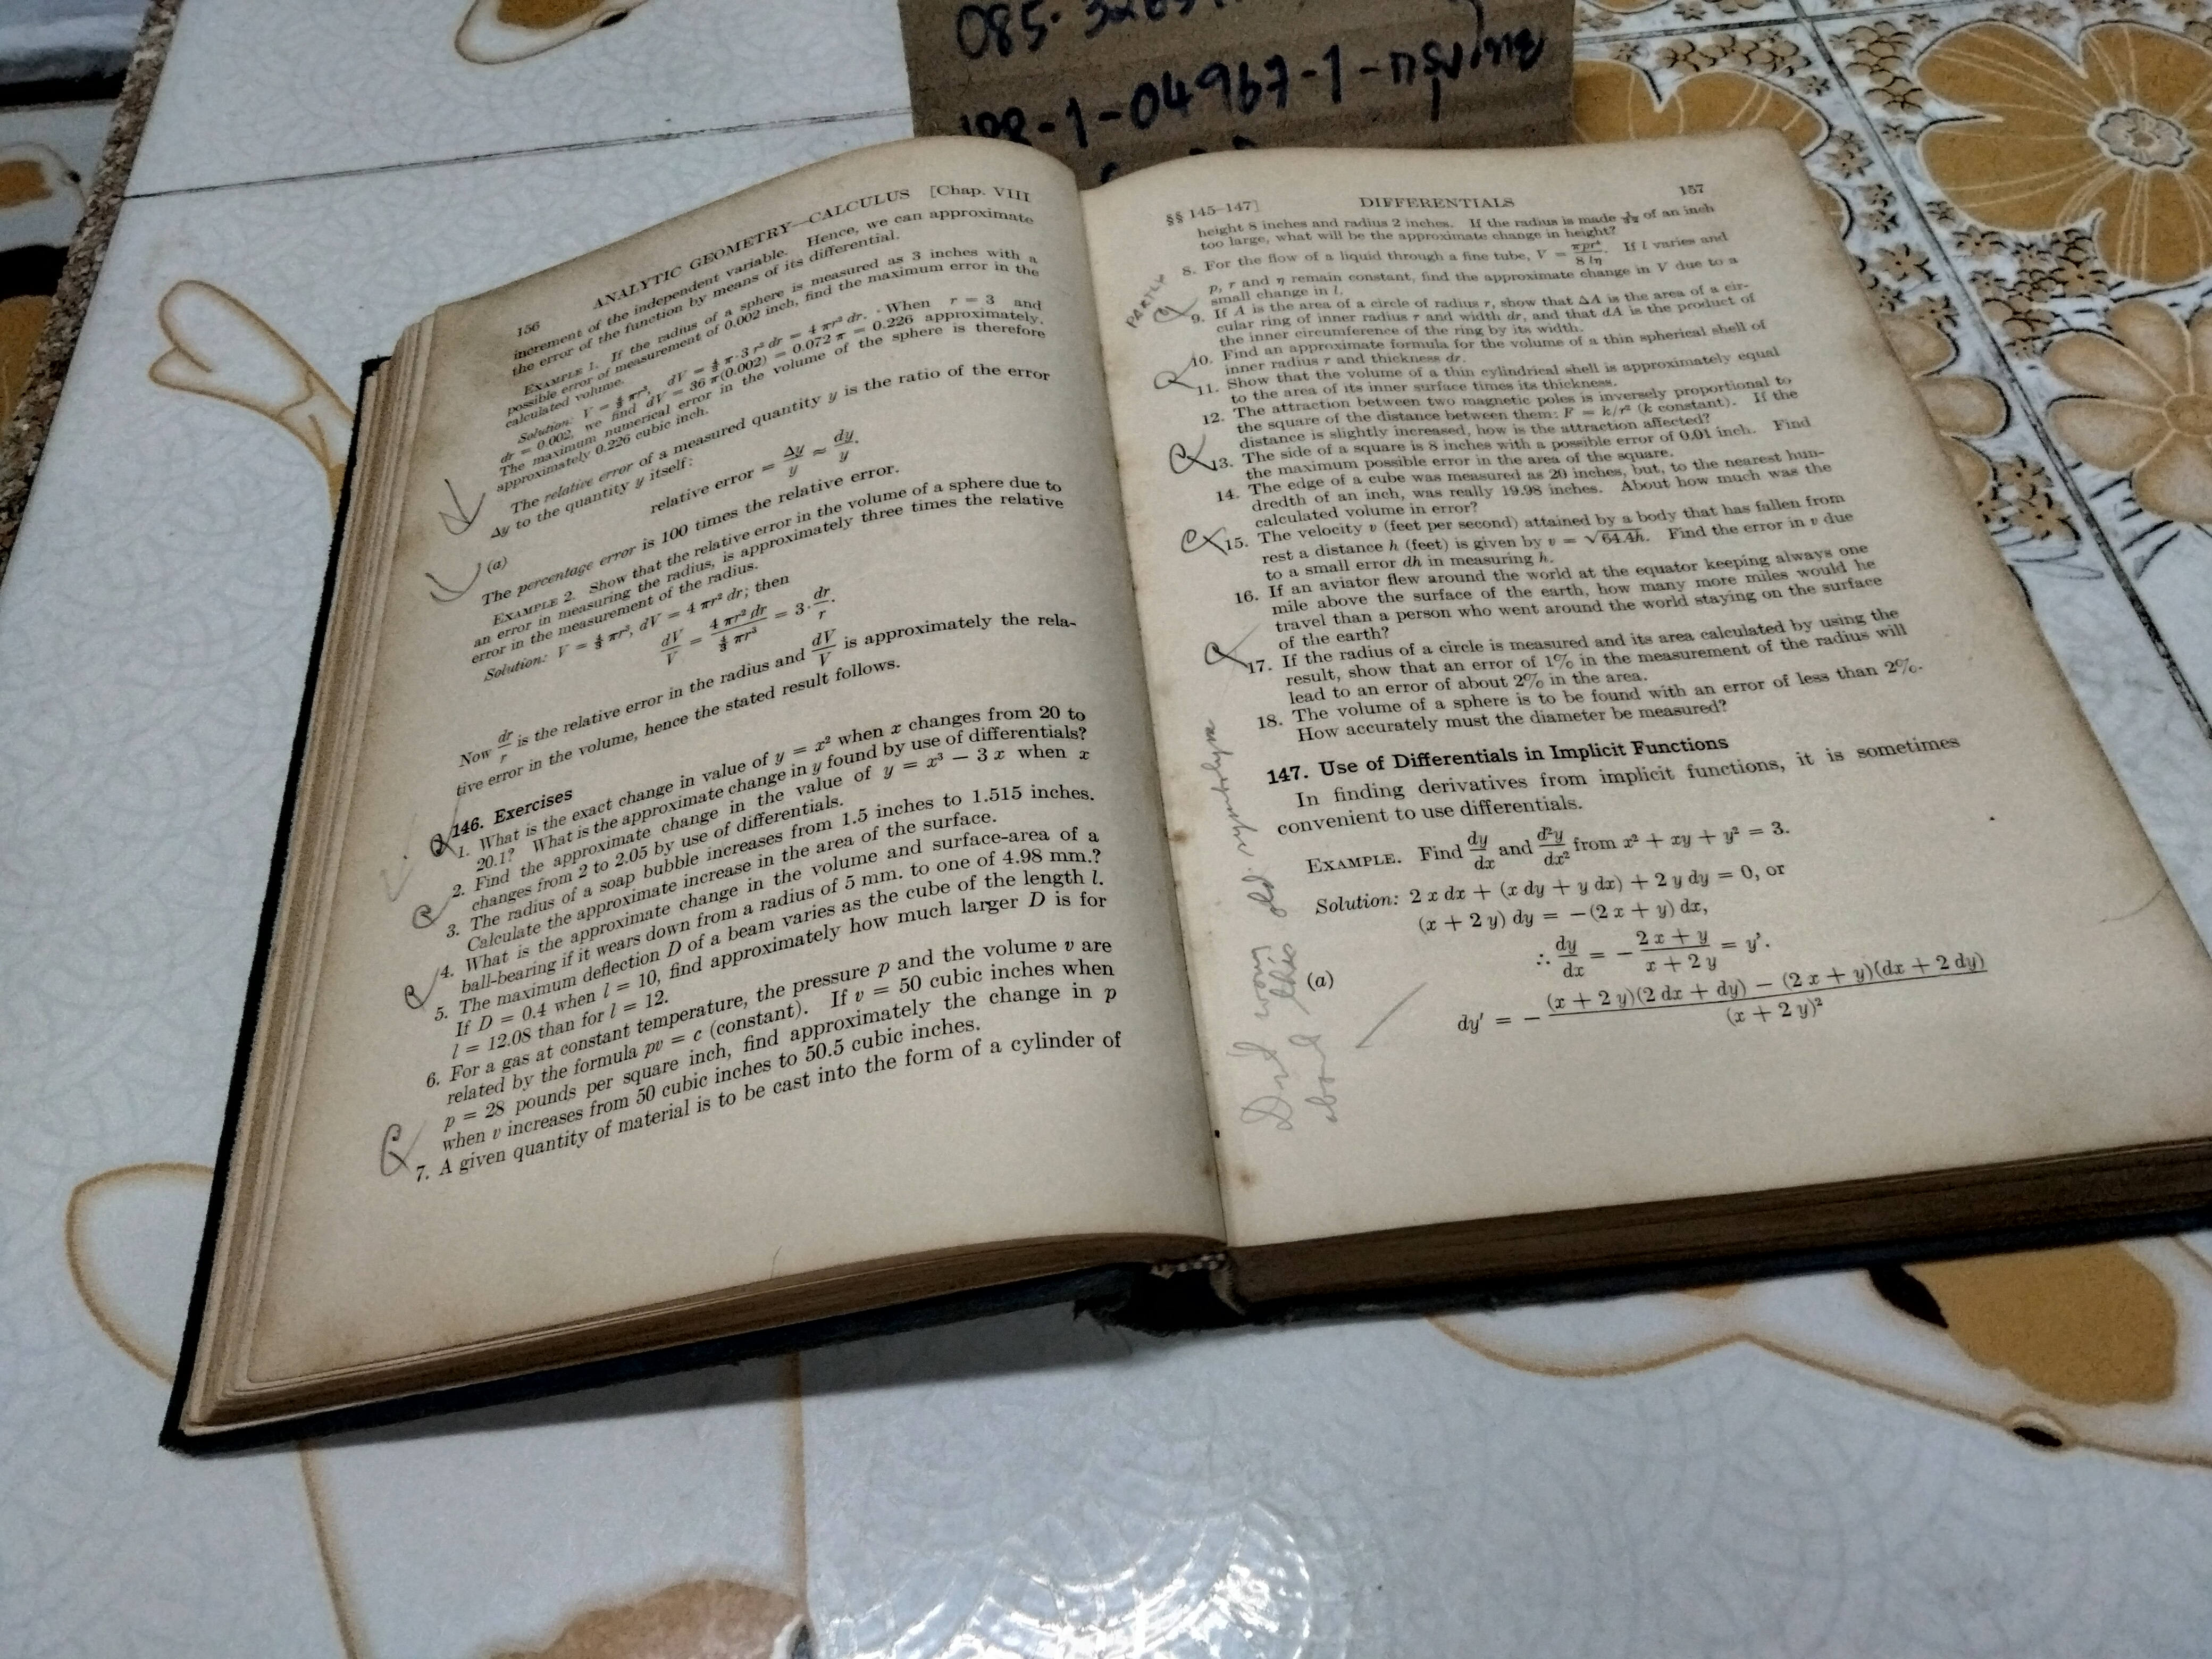 188-1-04967-1-กรุงไทย
156 ANALYTIC GEOMETRY—CALCULUS [Chap. VIII
increment of the independent variable. Hence, we can approximate
the error of the function by means of its differential.
EXAMPLE 1. If the radius of a sphere is measured as 3 inches with a
possible error of measurement of 0.002 inch, find the maximum error in the
calculated volume.
Solution: V = 4/3 πr³, dV = 4/3 π·3 r² dr = 4 πr² dr. When r = 3 and
dr = 0.002, we find dV = 36 π(0.002) = 0.072 π = 0.226 approximately.
The maximum numerical error in the volume of the sphere is therefore
approximately 0.226 cubic inch.
The relative error of a measured quantity y is the ratio of the error
Δy to the quantity y itself:
(a) relative error = Δy/y ≈ dy/y.
The percentage error is 100 times the relative error.
EXAMPLE 2. Show that the relative error in the volume of a sphere due to
an error in measuring the radius, is approximately three times the relative
error in the measurement of the radius.
Solution: V = 4/3 πr³, dV = 4 πr² dr; then
dV/V = 4 πr² dr / 4/3 πr³ = 3 · dr/r.
Now dr/r is the relative error in the radius and dV/V is approximately the rela-
tive error in the volume, hence the stated result follows.
146. Exercises
1. What is the exact change in value of y = x² when x changes from 20 to
20.1? What is the approximate change in y found by use of differentials?
2. Find the approximate change in the value of y = x³ − 3 x when x
changes from 2 to 2.05 by use of differentials.
3. The radius of a soap bubble increases from 1.5 inches to 1.515 inches.
Calculate the approximate increase in the area of the surface.
4. What is the approximate change in the volume and surface-area of a
ball-bearing if it wears down from a radius of 5 mm. to one of 4.98 mm.?
5. The maximum deflection D of a beam varies as the cube of the length l.
If D = 0.4 when l = 10, find approximately how much larger D is for
l = 12.08 than for l = 12.
6. For a gas at constant temperature, the pressure p and the volume v are
related by the formula pv = c (constant). If v = 50 cubic inches when
p = 28 pounds per square inch, find approximately the change in p
when v increases from 50 cubic inches to 50.5 cubic inches.
7. A given quantity of material is to be cast into the form of a cylinder of
§§ 145–147] DIFFERENTIALS 157
height 8 inches and radius 2 inches. If the radius is made of an inch
too large, what will be the approximate change in height?
8. For the flow of a liquid through a fine tube, V = πpr⁴/8 lη. If l varies and
p, r and η remain constant, find the approximate change in V due to a
small change in l.
PARTLY
9. If A is the area of a circle of radius r, show that ΔA is the area of a cir-
cular ring of inner radius r and width dr, and that dA is the product of
the inner circumference of the ring by its width.
10. Find an approximate formula for the volume of a thin spherical shell of
inner radius r and thickness dr.
11. Show that the volume of a thin cylindrical shell is approximately equal
to the area of its inner surface times its thickness.
12. The attraction between two magnetic poles is inversely proportional to
the square of the distance between them: F = k/r² (k constant). If the
distance is slightly increased, how is the attraction affected?
13. The side of a square is 8 inches with a possible error of 0.01 inch. Find
the maximum possible error in the area of the square.
14. The edge of a cube was measured as 20 inches, but, to the nearest hun-
dredth of an inch, was really 19.98 inches. About how much was the
calculated volume in error?
15. The velocity v (feet per second) attained by a body that has fallen from
rest a distance h (feet) is given by v = √64.4h. Find the error in v due
to a small error dh in measuring h.
16. If an aviator flew around the world at the equator keeping always one
mile above the surface of the earth, how many more miles would he
travel than a person who went around the world staying on the surface
of the earth?
17. If the radius of a circle is measured and its area calculated by using the
result, show that an error of 1% in the measurement of the radius will
lead to an error of about 2% in the area.
18. The volume of a sphere is to be found with an error of less than 2%.
How accurately must the diameter be measured?
147. Use of Differentials in Implicit Functions
In finding derivatives from implicit functions, it is sometimes
convenient to use differentials.
EXAMPLE. Find dy/dx and d²y/dx² from x² + xy + y² = 3.
Solution: 2 x dx + (x dy + y dx) + 2 y dy = 0, or
(x + 2 y) dy = −(2 x + y) dx,
(a) ∴ dy/dx = − (2 x + y)/(x + 2 y) = y′.
dy′ = − ((x + 2 y)(2 dx + dy) − (2 x + y)(dx + 2 dy))/(x + 2 y)²
Don't worry
about this